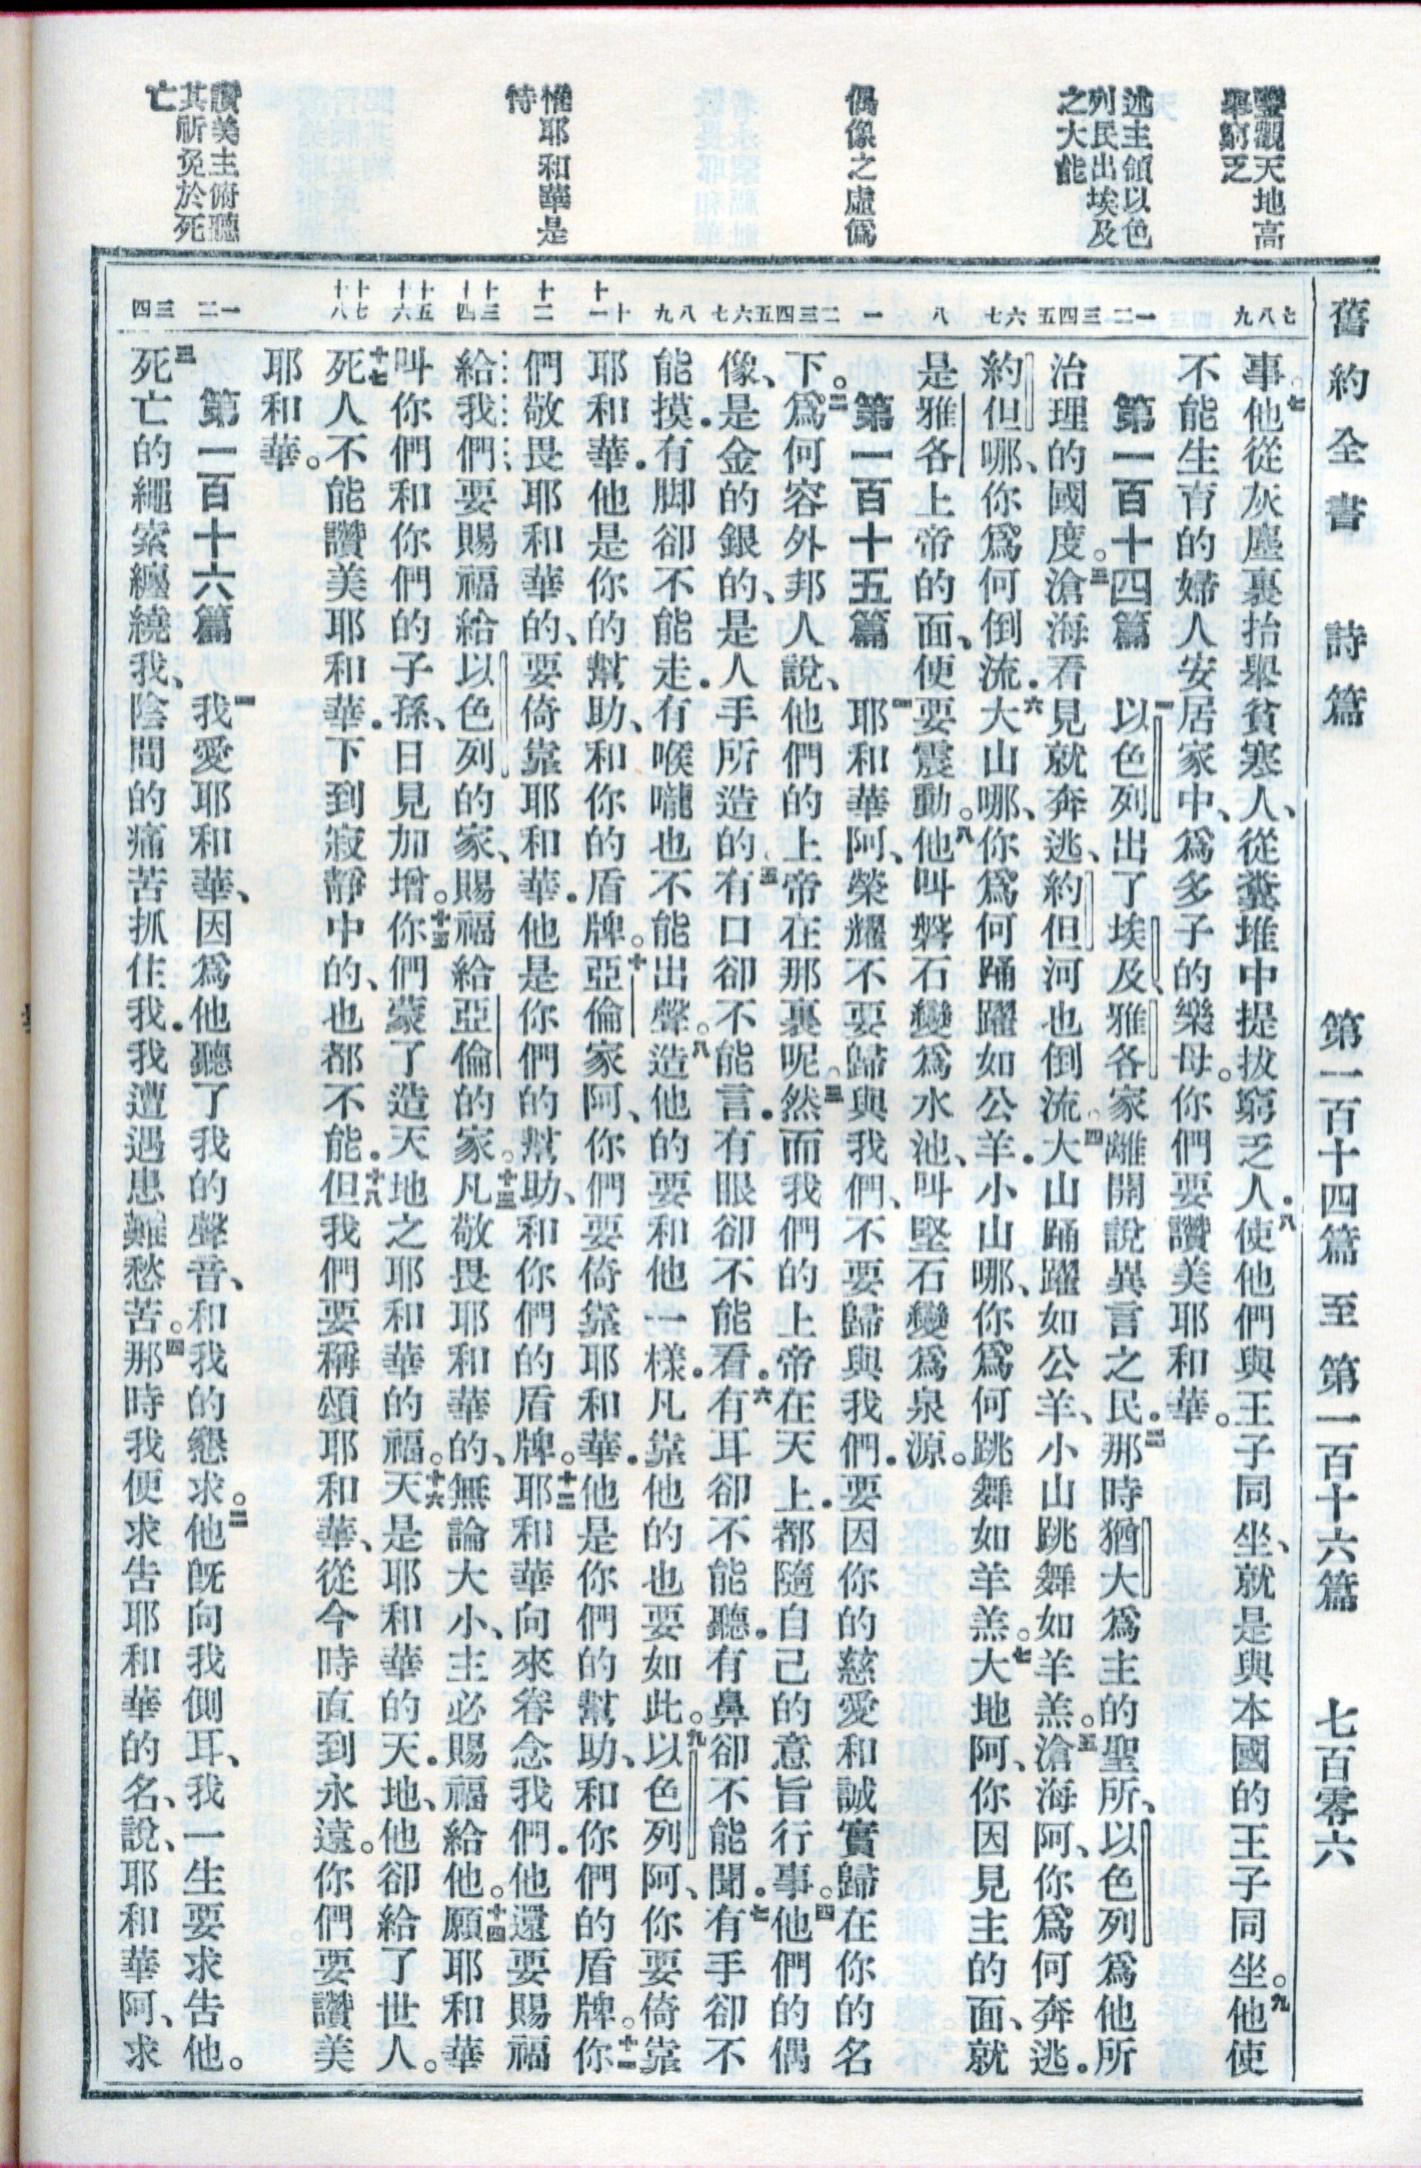 舊約全書 詩篇 第一百十四篇至第一百十六篇 七百零六
鑒觀天地高
舉窮乏
述主領以色
列民出埃及
之大能
偶像之虛僞
惟耶和華是
恃
讚美主俯聽
其祈免於死
亡
七八九
一二
三四五
六七
八
一
二三四五六七
八九
十十一
十二
十三十四
十五十六
十七十八
一二
三四
事。七他從灰塵裏抬舉貧寒人、從糞堆中提拔窮乏人.八使他們與王子同坐、就是與本國的王子同坐。九他使
不能生育的婦人安居家中、爲多子的樂母。你們要讚美耶和華。
第一百十四篇 一以色列出了埃及、雅各家離開說異言之民.二那時猶大爲主的聖所、以色列爲他所
治理的國度。三滄海看見就奔逃、約但河也倒流。四大山踊躍如公羊、小山跳舞如羊羔。五滄海阿、你爲何奔逃.
約但哪、你爲何倒流.六大山哪、你爲何踊躍如公羊.小山哪、你爲何跳舞如羊羔。七大地阿、你因見主的面、就
是雅各上帝的面、便要震動。八他叫磐石變爲水池、叫堅石變爲泉源。
第一百十五篇 一耶和華阿、榮耀不要歸與我們、不要歸與我們.要因你的慈愛和誠實歸在你的名
下。二爲何容外邦人說、他們的上帝在那裏呢。三然而我們的上帝在天上.都隨自己的意旨行事。四他們的偶
像、是金的銀的、是人手所造的、五有口卻不能言.有眼卻不能看.六有耳卻不能聽.有鼻卻不能聞.七有手卻不
能摸.有脚卻不能走.有喉嚨也不能出聲。八造他的要和他一樣.凡靠他的也要如此。九以色列阿、你要倚靠
耶和華.他是你的幫助、和你的盾牌。十亞倫家阿、你們要倚靠耶和華.他是你們的幫助、和你們的盾牌。十一你
們敬畏耶和華的、要倚靠耶和華.他是你們的幫助、和你們的盾牌。十二耶和華向來眷念我們.他還要賜福
給我們.要賜福給以色列的家、賜福給亞倫的家。十三凡敬畏耶和華的、無論大小、主必賜福給他。十四願耶和華
叫你們和你們的子孫、日見加增。十五你們蒙了造天地之耶和華的福。十六天是耶和華的天.地、他卻給了世人。
十七死人不能讚美耶和華.下到寂靜中的、也都不能.十八但我們要稱頌耶和華、從今時直到永遠。你們要讚美
耶和華。
第一百十六篇 一我愛耶和華、因爲他聽了我的聲音、和我的懇求。二他旣向我側耳、我一生要求告他。
三死亡的繩索纏繞我、陰間的痛苦抓住我.我遭遇患難愁苦。四那時我便求告耶和華的名、說、耶和華阿、求